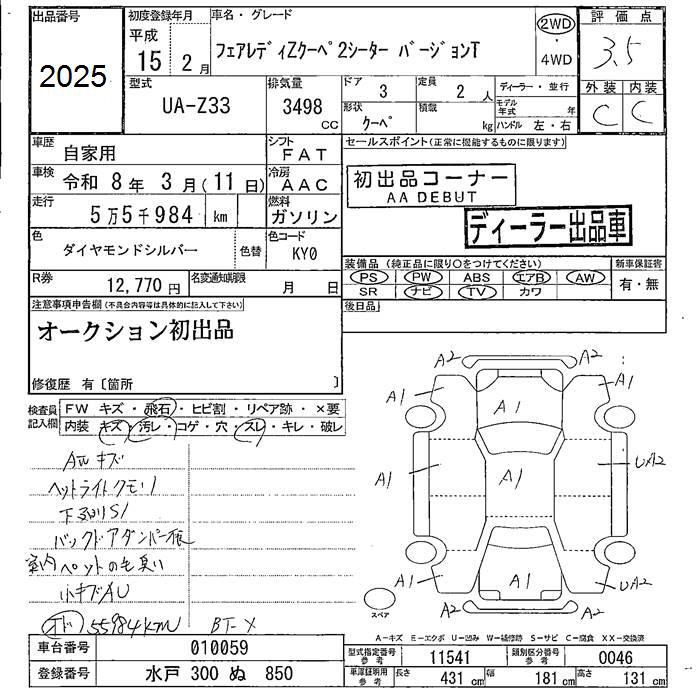 出品番号
2025
初度登録年月
平成
15年 2月
車名・グレード
フェアレディZクーペ 2シーター バージョンT
2WD
・
4WD
評価点
3.5
外装 内装
C C
型式
UA-Z33
排気量
3498
CC
ドア
3
定員
2 人
形状
クーペ
積載
kg
ディーラー・並行
モデル年式 年
ハンドル 左・右
車歴
自家用
シフト
FAT
車検
令和 8年 3月(11日)
冷房
AAC
走行
5万5千984 km
燃料
ガソリン
色
ダイヤモンドシルバー
色替
色コード
KY0
R券
12,770円
名変通知期限
月 日
セールスポイント(正常に機能するものに限ります)
初出品コーナー
AA DEBUT
ディーラー出品車
装備品(純正品に限り○をつけてください)
PS PW ABS エアB AW
SR ナビ TV カワ
新車保証書
有・無
後日品
注意事項申告欄(不具合内容等は具体的に記入して下さい)
オークション初出品
修復歴 有〔箇所 〕
検査員記入欄
FW キズ・飛石・ヒビ割・リペア跡・×要
内装 キズ・汚レ・コゲ・穴・スレ・キレ・破レ
AW キズ
ヘットライトクモリ
下廻りS1
バックドアダンパー
室内ペットの毛臭い
小キズAU
オド 55984KM BT-X
A2 A2
A1 A1
A1
A1 A1 UA2
A1 A1 UA2
A2 A2
スペア
A-キズ E-エクボ U-凹み W-補修跡 S-サビ C-腐食 XX-交換済
車台番号
010059
登録番号
水戸 300 ぬ 850
型式指定番号
参考
11541
類別区分番号
参考
0046
車庫証明用
参考
長さ 431 cm 幅 181 cm 高さ 131 cm